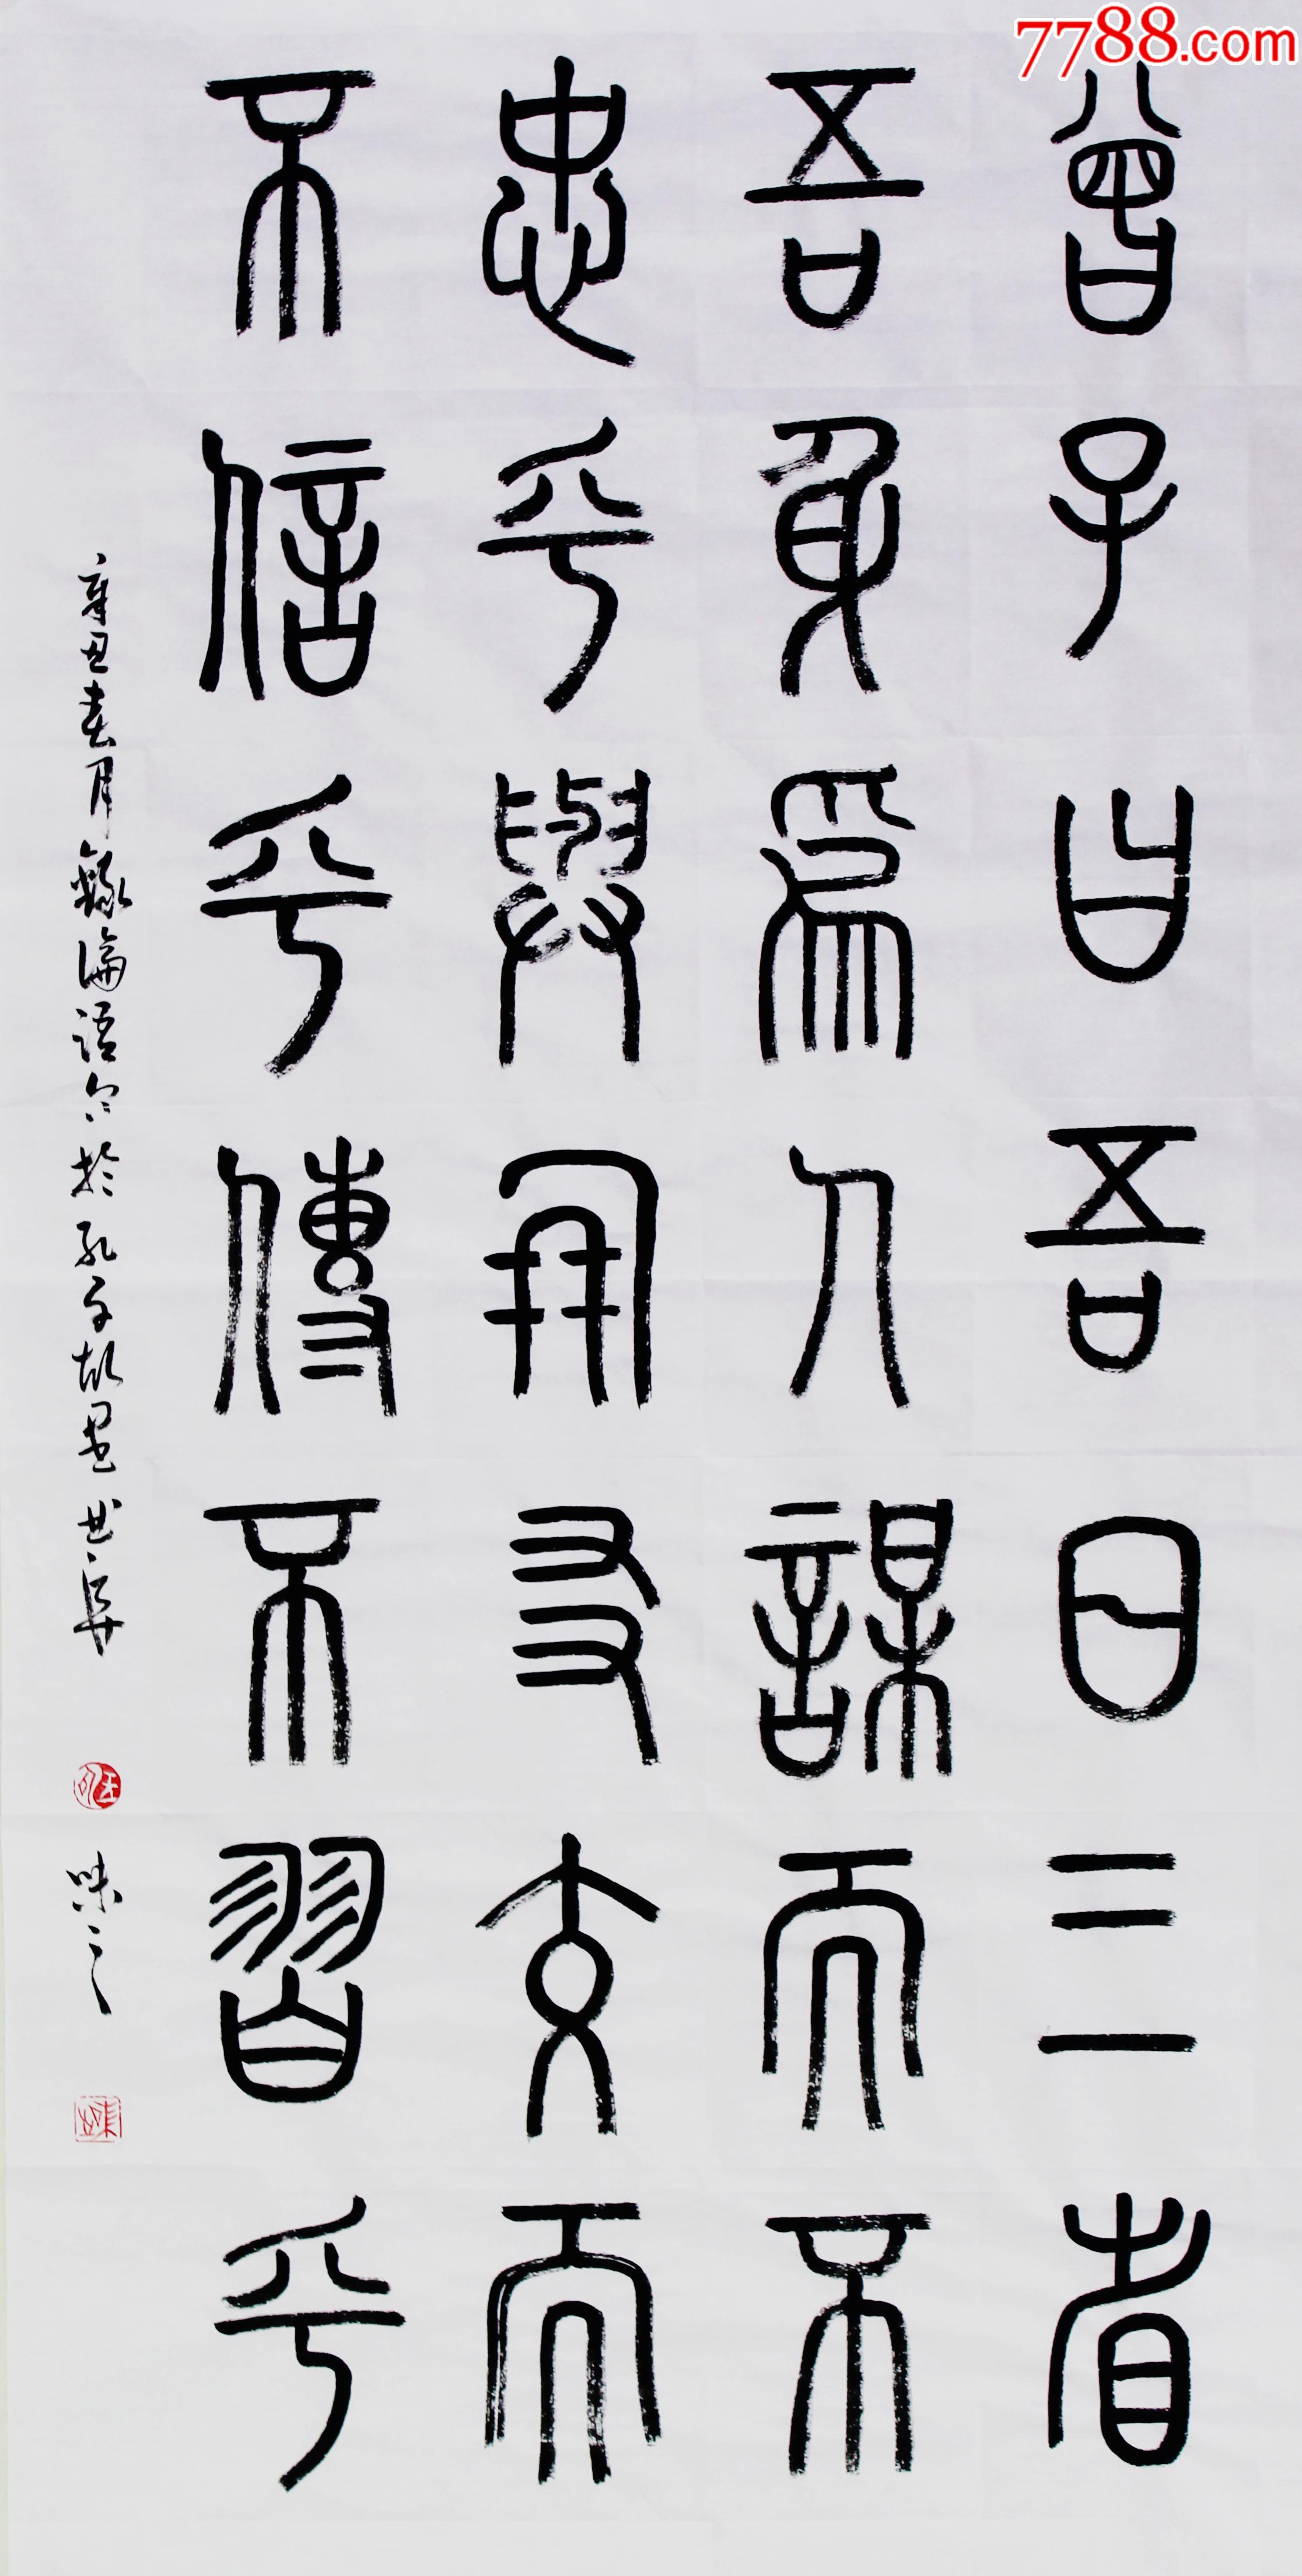 7788.com
曾子曰吾日三省
吾身為人謀而不
忠乎與朋友交而
不信乎傳不習乎
辛丑春月錄論語句於孔子故里曲阜
味之